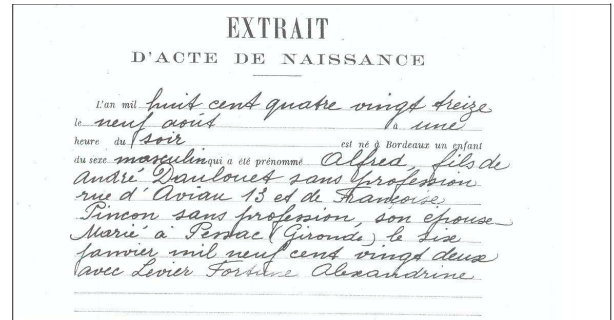 EXTRAIT
D'ACTE DE NAISSANCE
L'an mil huit cent quatre vingt treize
le neuf août à une
heure du soir est né à Bordeaux un enfant
du sexe masculin qui a été prénommé Alfred, fils de
André Daulouet sans profession
rue d'Aviau 13 et de Françoise
Pinçon sans profession, son épouse
Marié à Pessac (Gironde) le six
janvier mil neuf cent vingt deux
avec Levier Fortune Alexandrine